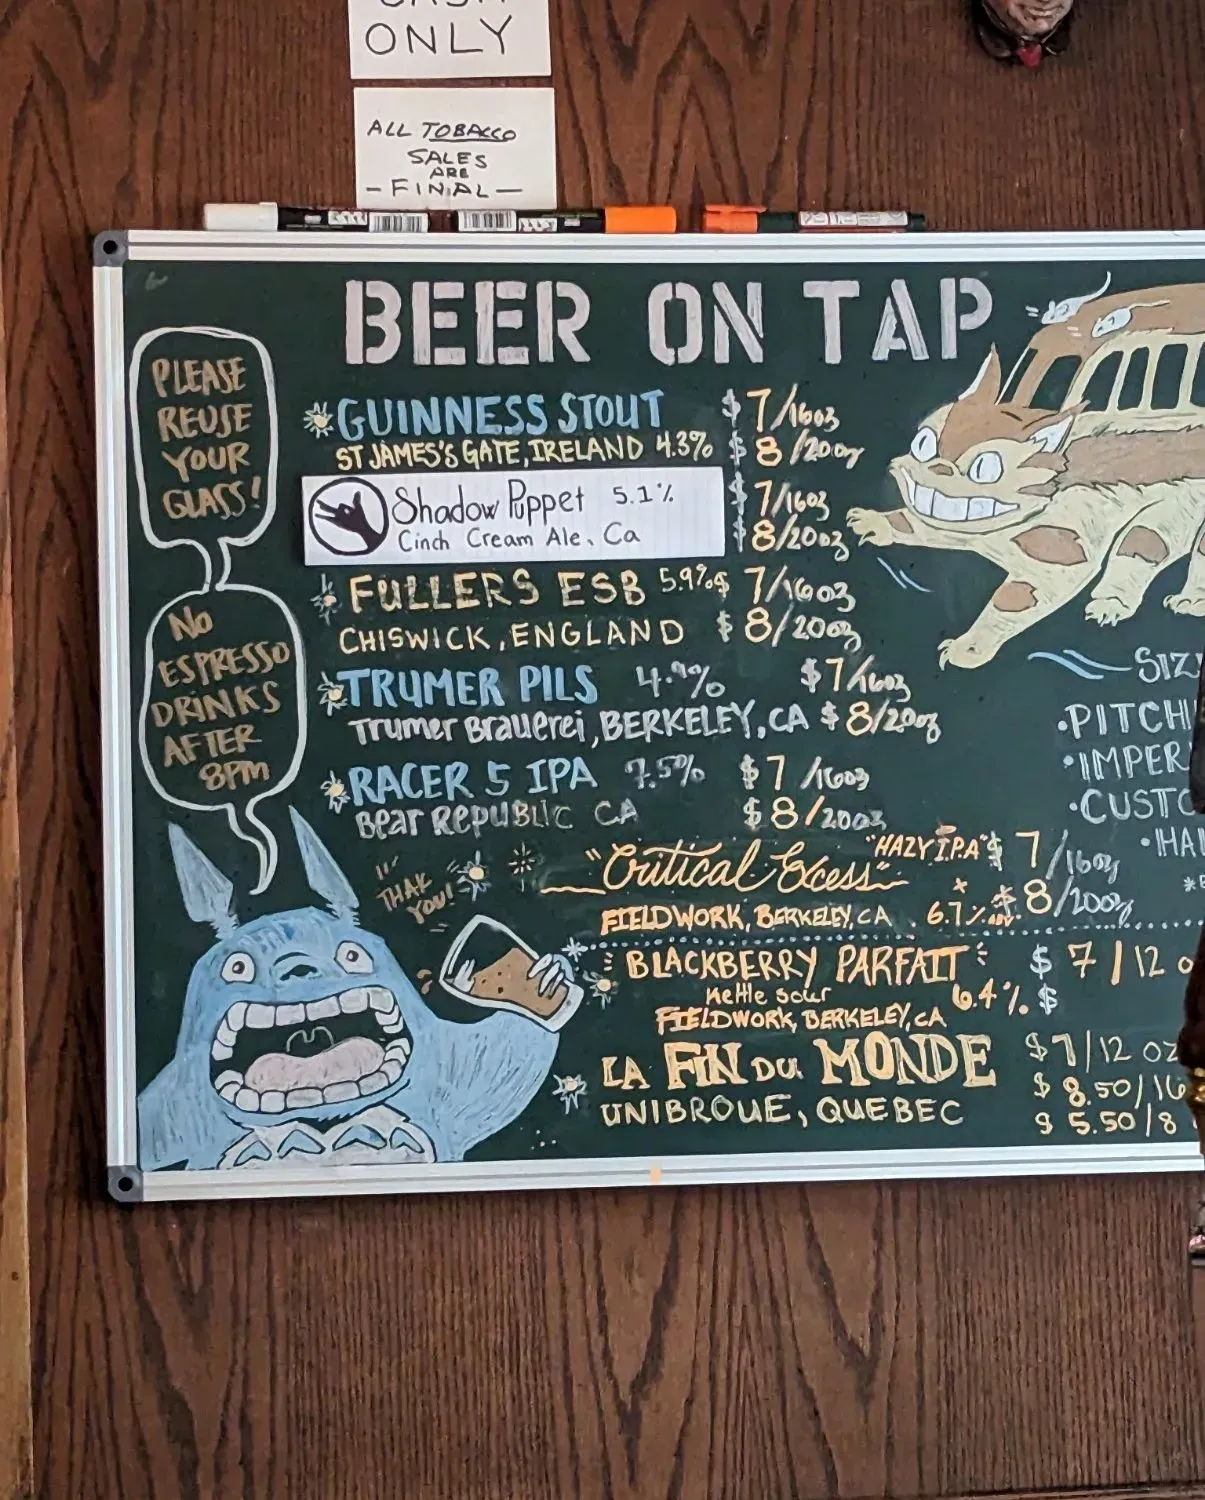 ONLY
ALL TOBACCO
SALES
ARE
- FINAL -
BEER ON TAP
PLEASE
REUSE
YOUR
GLASS!
NO
ESPRESSO
DRINKS
AFTER
8PM
GUINNESS STOUT $7/16oz
ST JAMES'S GATE, IRELAND 4.3% $8/20oz
Shadow Puppet 5.1% $7/16oz
Cinch Cream Ale, Ca $8/20oz
FULLERS ESB 5.9% $7/16oz
CHISWICK, ENGLAND $8/20oz
TRUMER PILS 4.9% $7/16oz
Trumer Brauerei, BERKELEY, CA $8/20oz
RACER 5 IPA 7.5% $7/16oz
Bear Republic CA $8/20oz
"Critical Excess" "HAZY I.P.A" $7/16oz
FIELDWORK, BERKELEY, CA. 6.7% $8/20oz
BLACKBERRY PARFAIT $7/12 o
Kettle Sour 6.4% $
FIELDWORK, BERKELEY, CA
LA FIN DU MONDE $7/12 OZ
UNIBROUE, QUEBEC $8.50/16
$5.50/8
THAK
YOU!
SIZ
•PITCH
•IMPER
•CUSTO
•HAL